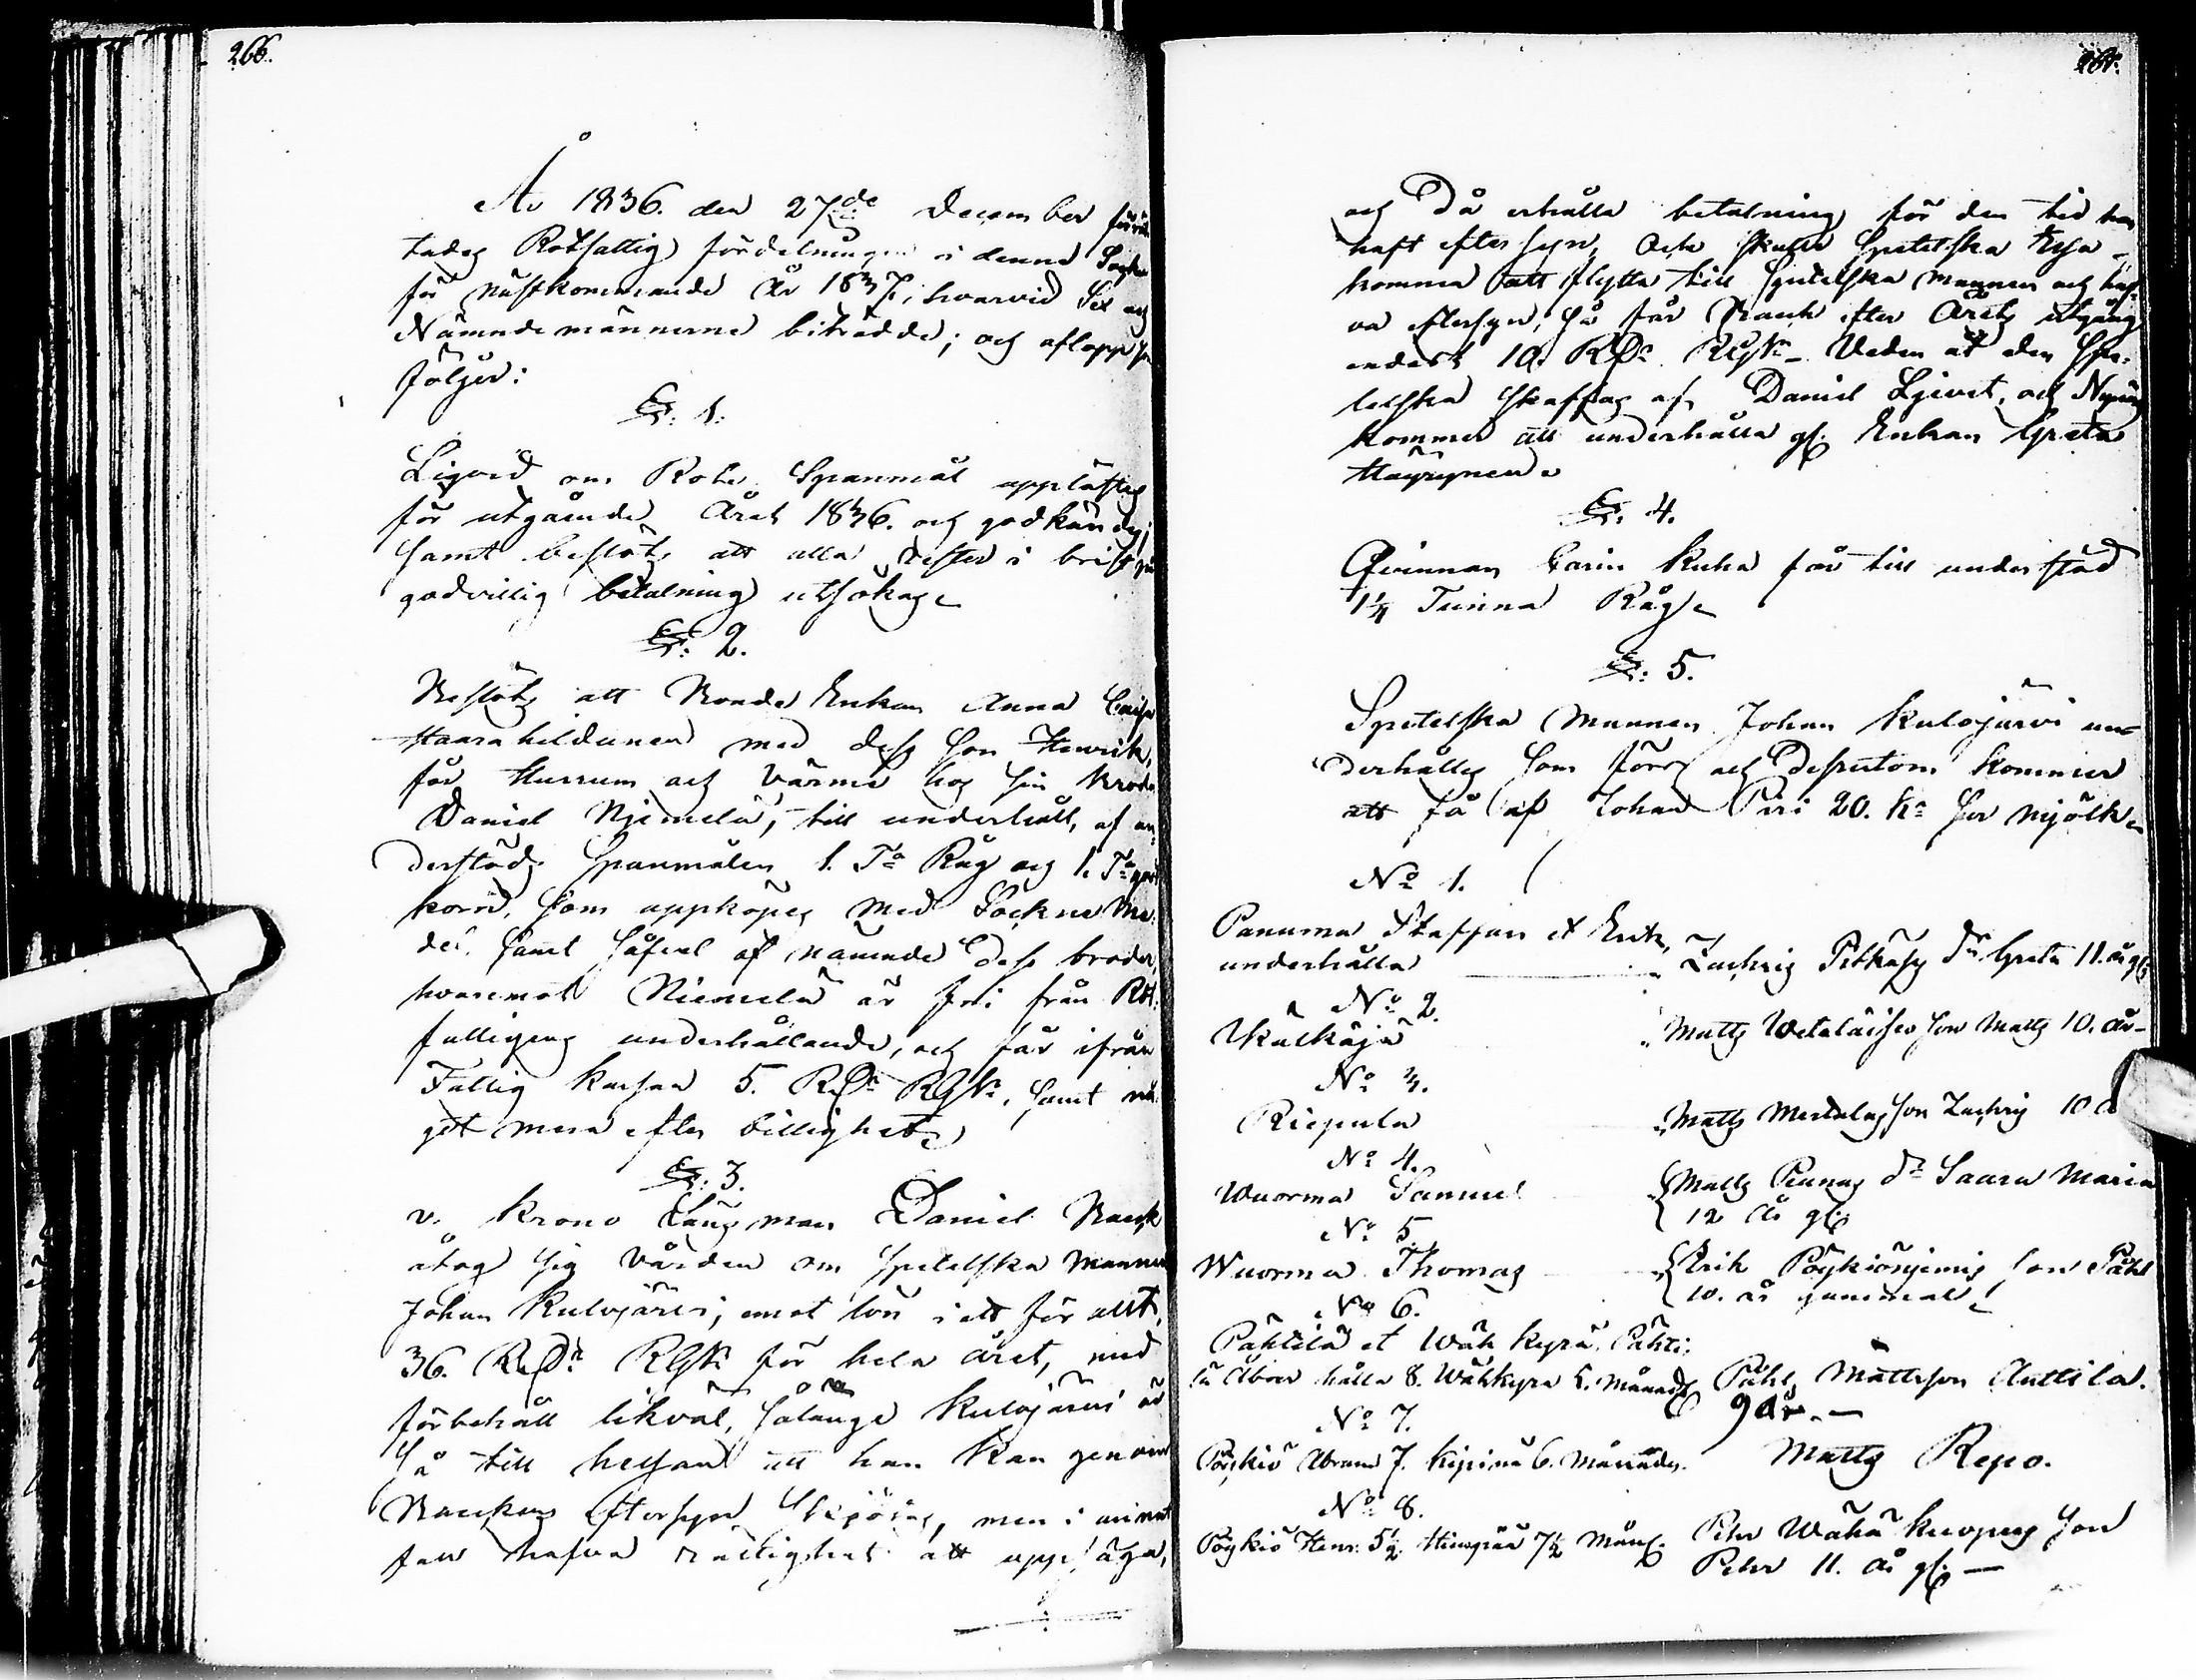 266.
År 1836. den 27de December förrät
tades Rotfattig fördelningen i denna Sockn
för nästkommande År 1837, hwarvid Sex ag
Nämndemännerne biträdde; och aflopp som
följer:
§: 1.
Liqvid om Rote Spanmål upplästes
för utgående Året 1836. och godkändes;
Samt beslöts att alla rester i brist på
godvillig betalning utsökas
§: 2.
Beslöts att Bonde Enkan Anna Caisa
Haarahilduner med dess Son Henrik,
får Husrum och Värme hos sin broder
Daniel Niemelä, till underhåll, af un
derstöds Spanmålen 1. Ta Råg och 1. Ta
korn, som uppköpes med Sockne Me
del. Samt Såfvel af nämnde Dess broder,
hvaremot Niemelä är fri från Rot
fattigens underhållande, och får ifrån
Fattig Kassan 5. RDr RGks, Samt nå
got mera efter billighet
§: 3.
v. Krono Länsman Daniel Nauk
åtog sig Vården om Spetelska Mannen
Johan Kulojärvi, emot lön i ett för allt,
36. RDr RGks för hela året, med
förbehåll likväl, Sålänge Kulojärvi är
Så till helsan att han kan genom
efterseyn Skjötas, men i annat
fall hafva rättighet att uppsäga,
267.
och Då erhålla betalning för den tid han
haft eftersyn, Och skulle Spetelska
komma att flytta till Spetelska mannen och haf
va eftersyn, Så får Nauk efter Årets utgång
endast 10. RDr RGks Veden åt den Spe
telska skaffas af Daniel Ljivet, och
kommer att underhålla gl. Enkan Greta
Häyrynen
§: 4.
Qvinnan Carin Kuha får till understöd
1/4 Tunna Råg
§: 5.
Spetelska Mannen Johan Kulojärvi un
derhålles Som förr och Dessutom kommer
att få af Johan Piri 20. ka Sur Mjölk
No 1.
Panuma Staffan et Erik,
underhålla Zachris Pitkäs dr Greta 11. år gl
No 2.
Kälkäjä Matts Weteläises Son Matts 10. år
No 3.
Riepula Matts Mertalas Son Zachris 10
No 4.
Wuorma Samuel Matts dr Saara Maria
12 År gl:
No 5.
Wuorma Thomas Erik Pöykiöniemis Son Påhl
10. år gammal
No 6.
Pahtila et Wäh kyrä Pahti:
la Åboer hålla 8. Wähkyrä 5. månader Påhl Mattsson Anttila.
9 år. —
No 7.
Pöykiö Abram 7. Kipinä 6. Månader. Matts Repo.
No 8.
Pöykiö Henr. 5½ 7½ Mån. Pehr Wähä Kuopus Son
Pehr 11. År gl: —